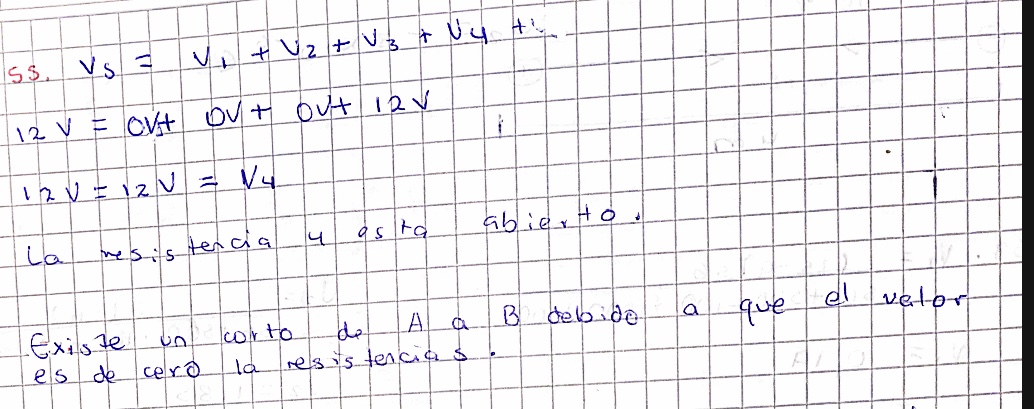 55. Vs = V1 + V2 + V3 + V4 + ...
12 V = 0V + 0V + 0V + 12 V
12 V = 12 V = V4
La resistencia 4 esta abierto.
Existe un corto de A a B debido a que el valor
es de cero la resistencias.